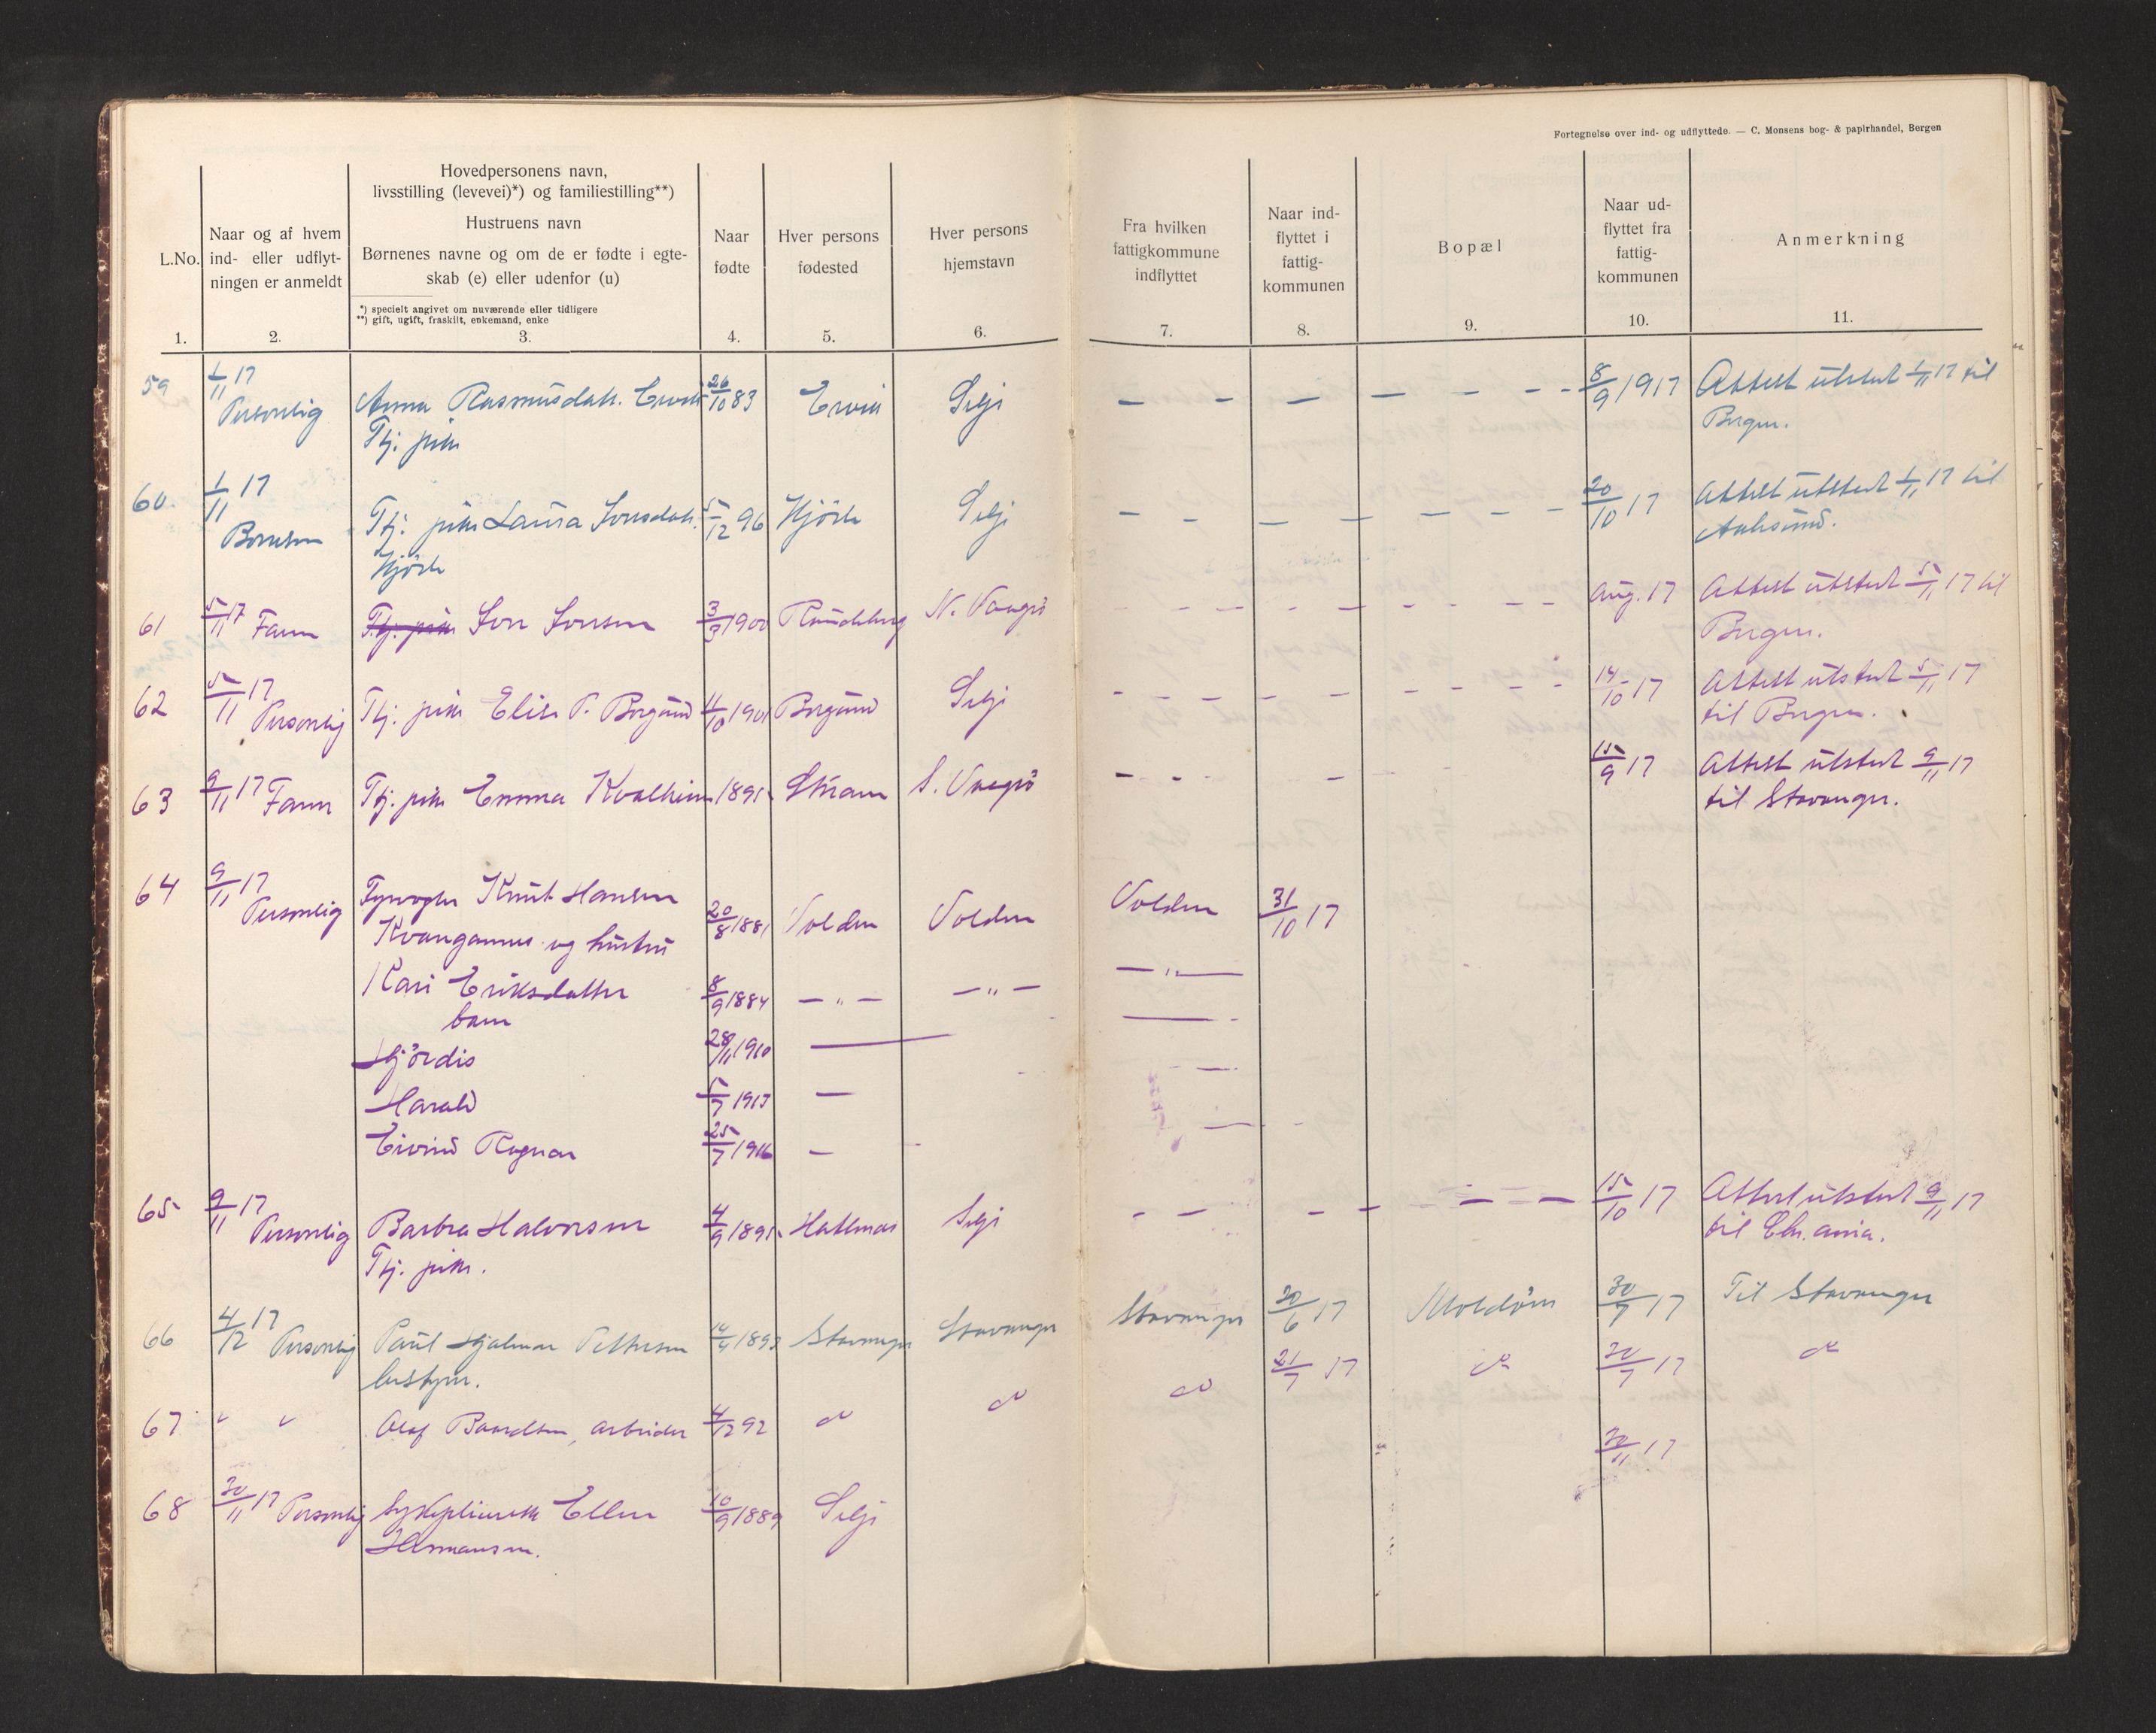 Fortegnelse over ind- og udflyttede. — C. Monsens bog- & papirhandel, Bergen
L.No.
1.
Naar og af hvem
ind- eller udflyt-
ningen er anmeldt
2.
Hovedpersonens navn,
livsstilling (levevei)*) og familiestilling**)
Hustruens navn
Børnenes navne og om de er fødte i egte-
skab (e) eller udenfor (u)
*) specielt angivet om nuværende eller tidligere
**) gift, ugift, fraskilt, enkemand, enke
3.
Naar
fødte
4.
Hver persons
fødested
5.
Hver persons
hjemstavn
6.
Fra hvilken
fattigkommune
indflyttet
7.
Naar ind-
flyttet i
fattig-
kommunen
8.
Bopæl
9.
Naar ud-
flyttet fra
fattig-
kommunen
10.
Anmerkning
11.
59 1/11 17 Personlig Anna Rasmusdatt. Ervik 26/10 83 Ervik Selje — — — — — — — 8/9 1917 Attest utstedt 1/11 17 til
Tj. pike Bergen.
60. 1/11 17 Tj. pike Laura Jonsdatt. 5/12 96 Hjörde Selje — — — — — — — 20/10 17 Attest utstedt 1/11 17 til
Hjörde Aalesund.
61 5/11 17 Faren Tj. pike Jon Jonsen 3/3 1900 Raudeberg N. Vaagsö — — — — — — — Aug. 17 Attest utstedt 5/11 17 til
Bergen.
62 5/11 17 Personlig Tj. pike Elise P. Borgund 4/10 1901 Borgund Selje — — — — — — — 14/10 17 Attest utstedt 5/11 17
til Bergen.
63 9/11 17 Faren Tj. pike Emma Kvalheim 1895 S. Vaagsö — — — 15/9 17 Attest utstedt 9/11 17
til Stavanger.
64 9/11 17 Personlig Fyrvogter Knut Hansen
og hustru 20/8 1881 Volden Volden Volden 31/10 17
Kari Eriksdatter 8/9 1884 — „ — — „ — — „ —
barn
Hjördis 28/11 1910 —
Harald 5/7 1913 —
Eivind Ragnar 25/7 1916 —
65 9/11 17 Personlig Barbra Halvorsen 4/9 1895 Selje — — — — — — 15/10 17 Attest utstedt 9/11 17
Tj. pike. til Chr.ania.
66 4/12 17 Personlig Paul Hjalmar Pettersen 1893 Stavanger Stavanger Stavanger 20/6 17 Moldöen 30/7 17 Til Stavanger
67 „ „ Olaf Baardsen, arbeider 4/12 92 do do do 21/7 17 do 30/7 17 do
68 30/11 17 Personlig Sykepleierske Ellen 10/9 1889 Selje 30/11 17
Hermansen.